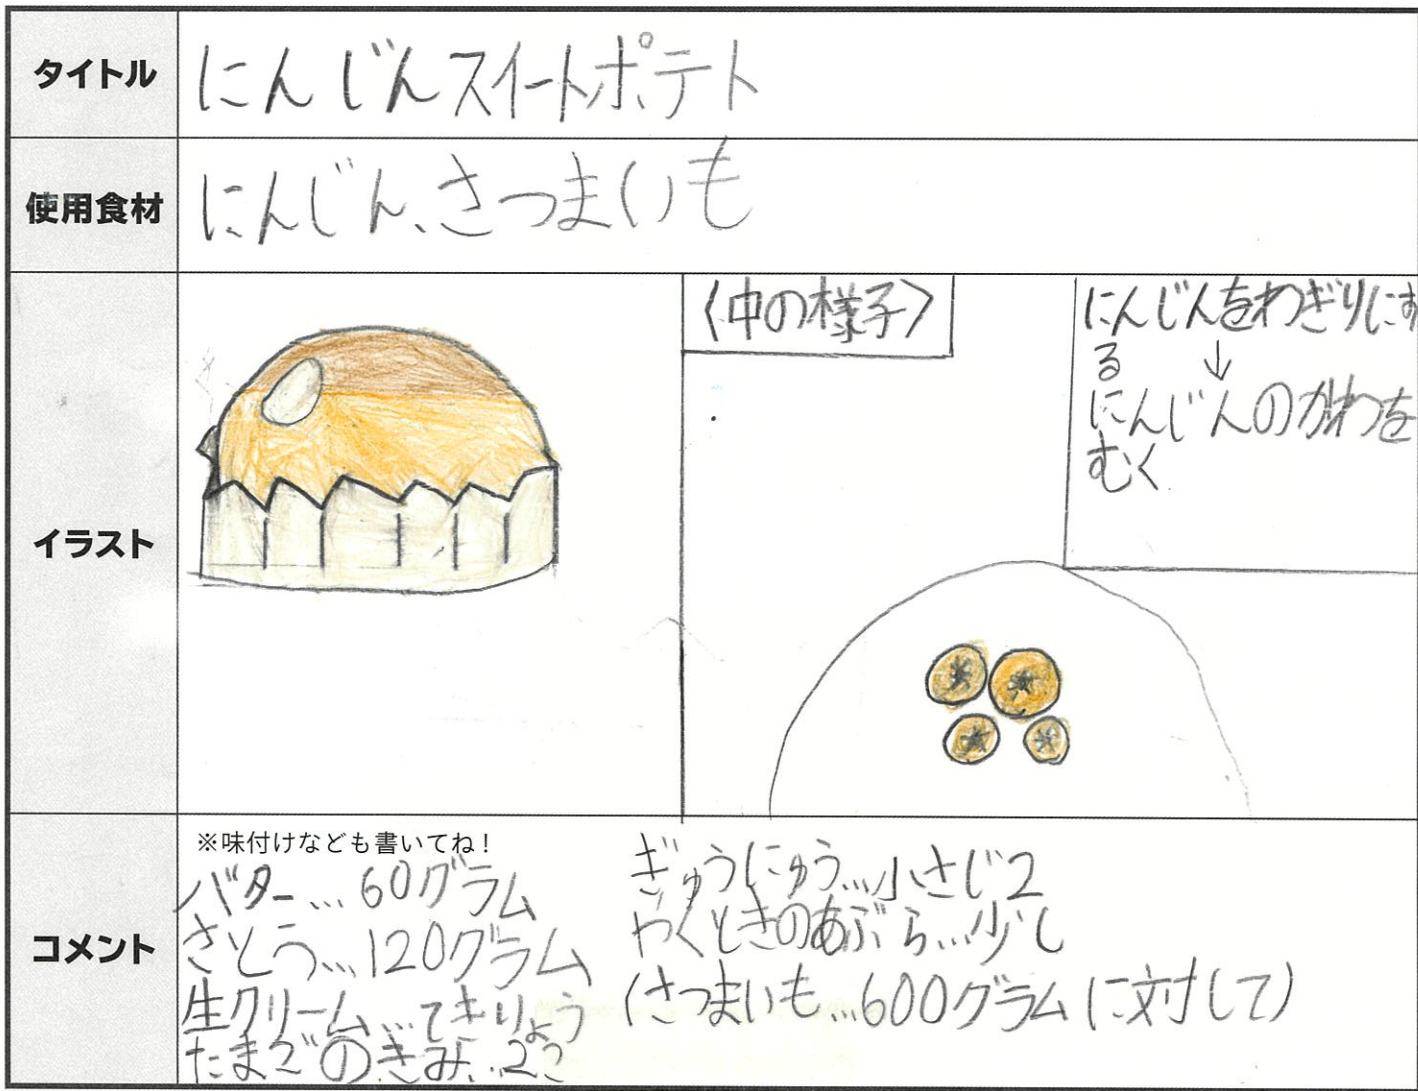 タイトル
にんじんスイートポテト
使用食材
にんじん、さつまいも
イラスト
〈中の様子〉
にんじんをわぎりにす
る ↓
にんじんのかわを
むく
コメント
※味付けなども書いてね!
バター…60グラム
さとう…120グラム
生クリーム…てきりょう
たまごのきみ…2こ
ぎゅうにゅう…小さじ2
やくときのあぶら…少し
(さつまいも…600グラムに対して)